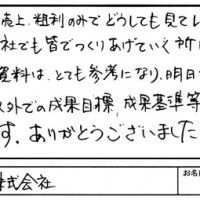 売上、粗利のみでどうしても見てし
社でも皆でつくりあげていく所に
資料は、とても参考になり、明日
以外での成果目標、成果基準等
す。ありがとうございました
株式会社
お名